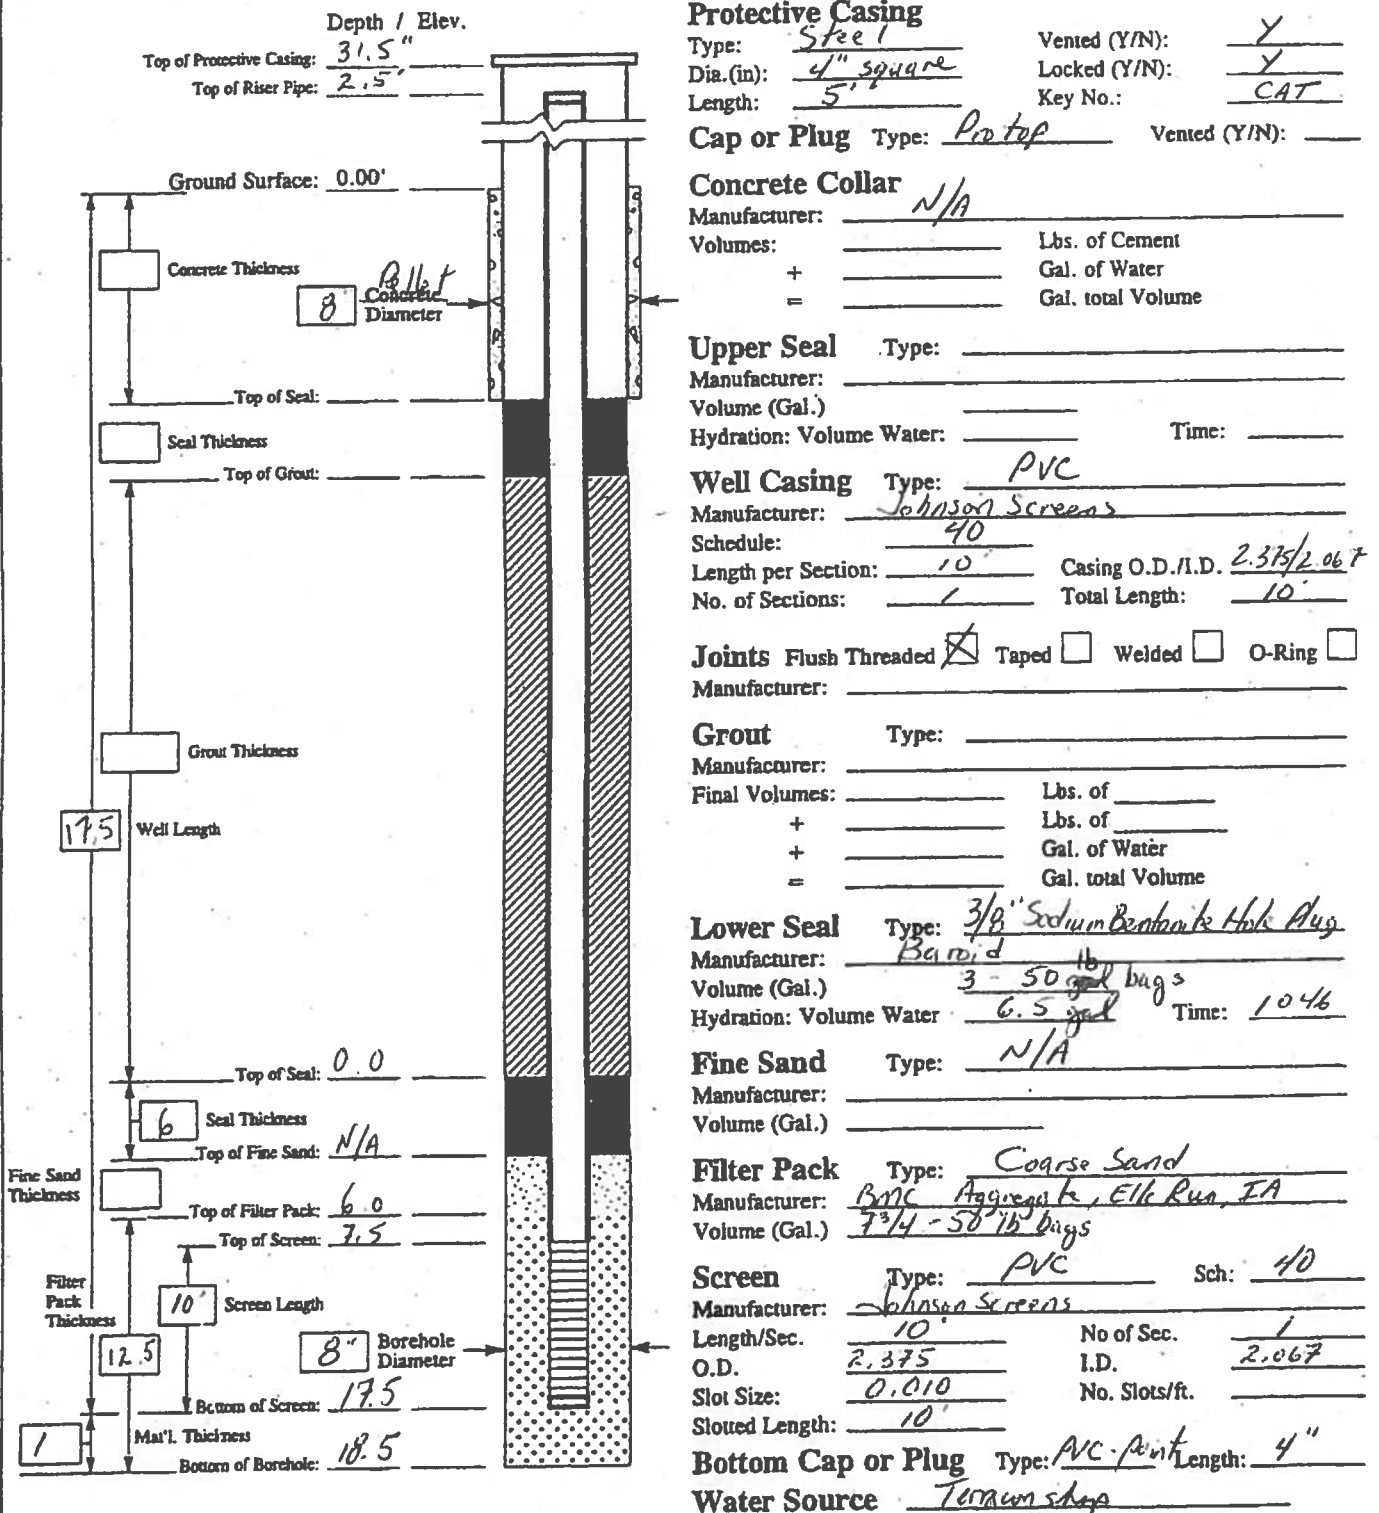 Depth / Elev.
Top of Protective Casing: 31.5"
Top of Riser Pipe: 2.5'
Ground Surface: 0.00'
Concrete Thickness
8 Pellet Concrete Diameter
Top of Seal:
Seal Thickness
Top of Grout:
Grout Thickness
17.5 Well Length
Top of Seal: 0.0
6 Seal Thickness
Top of Fine Sand: N/A
Fine Sand Thickness
Top of Filter Pack: 6.0
Top of Screen: 7.5
Filter Pack Thickness
12.5
10' Screen Length
8" Borehole Diameter
Bottom of Screen: 17.5
1 Mat'l. Thickness
Bottom of Borehole: 18.5
Protective Casing
Type: Steel Vented (Y/N): Y
Dia.(in): 4" square Locked (Y/N): Y
Length: 5' Key No.: CAT
Cap or Plug Type: Pro top Vented (Y/N):
Concrete Collar
Manufacturer: N/A
Volumes: Lbs. of Cement
+ Gal. of Water
= Gal. total Volume
Upper Seal Type:
Manufacturer:
Volume (Gal.)
Hydration: Volume Water: Time:
Well Casing Type: PVC
Manufacturer: Johnson Screens
Schedule: 40
Length per Section: 10' Casing O.D./I.D. 2.375/2.067
No. of Sections: 1 Total Length: 10'
Joints Flush Threaded X Taped Welded O-Ring
Manufacturer:
Grout Type:
Manufacturer:
Final Volumes: Lbs. of
+ Lbs. of
+ Gal. of Water
= Gal. total Volume
Lower Seal Type: 3/8" Sodium Bentonite Hole Plug
Manufacturer: Baroid
Volume (Gal.) 3 - 50 lb gal bags
Hydration: Volume Water 6.5 gal Time: 1046
Fine Sand Type: N/A
Manufacturer:
Volume (Gal.)
Filter Pack Type: Coarse Sand
Manufacturer: BMC Aggregate, Elk Run, IA
Volume (Gal.) 7 3/4 - 50 lb bags
Screen Type: PVC Sch: 40
Manufacturer: Johnson Screens
Length/Sec. 10' No of Sec. 1
O.D. 2.375 I.D. 2.067
Slot Size: 0.010 No. Slots/ft.
Slotted Length: 10'
Bottom Cap or Plug Type: PVC-Point Length: 4"
Water Source shop